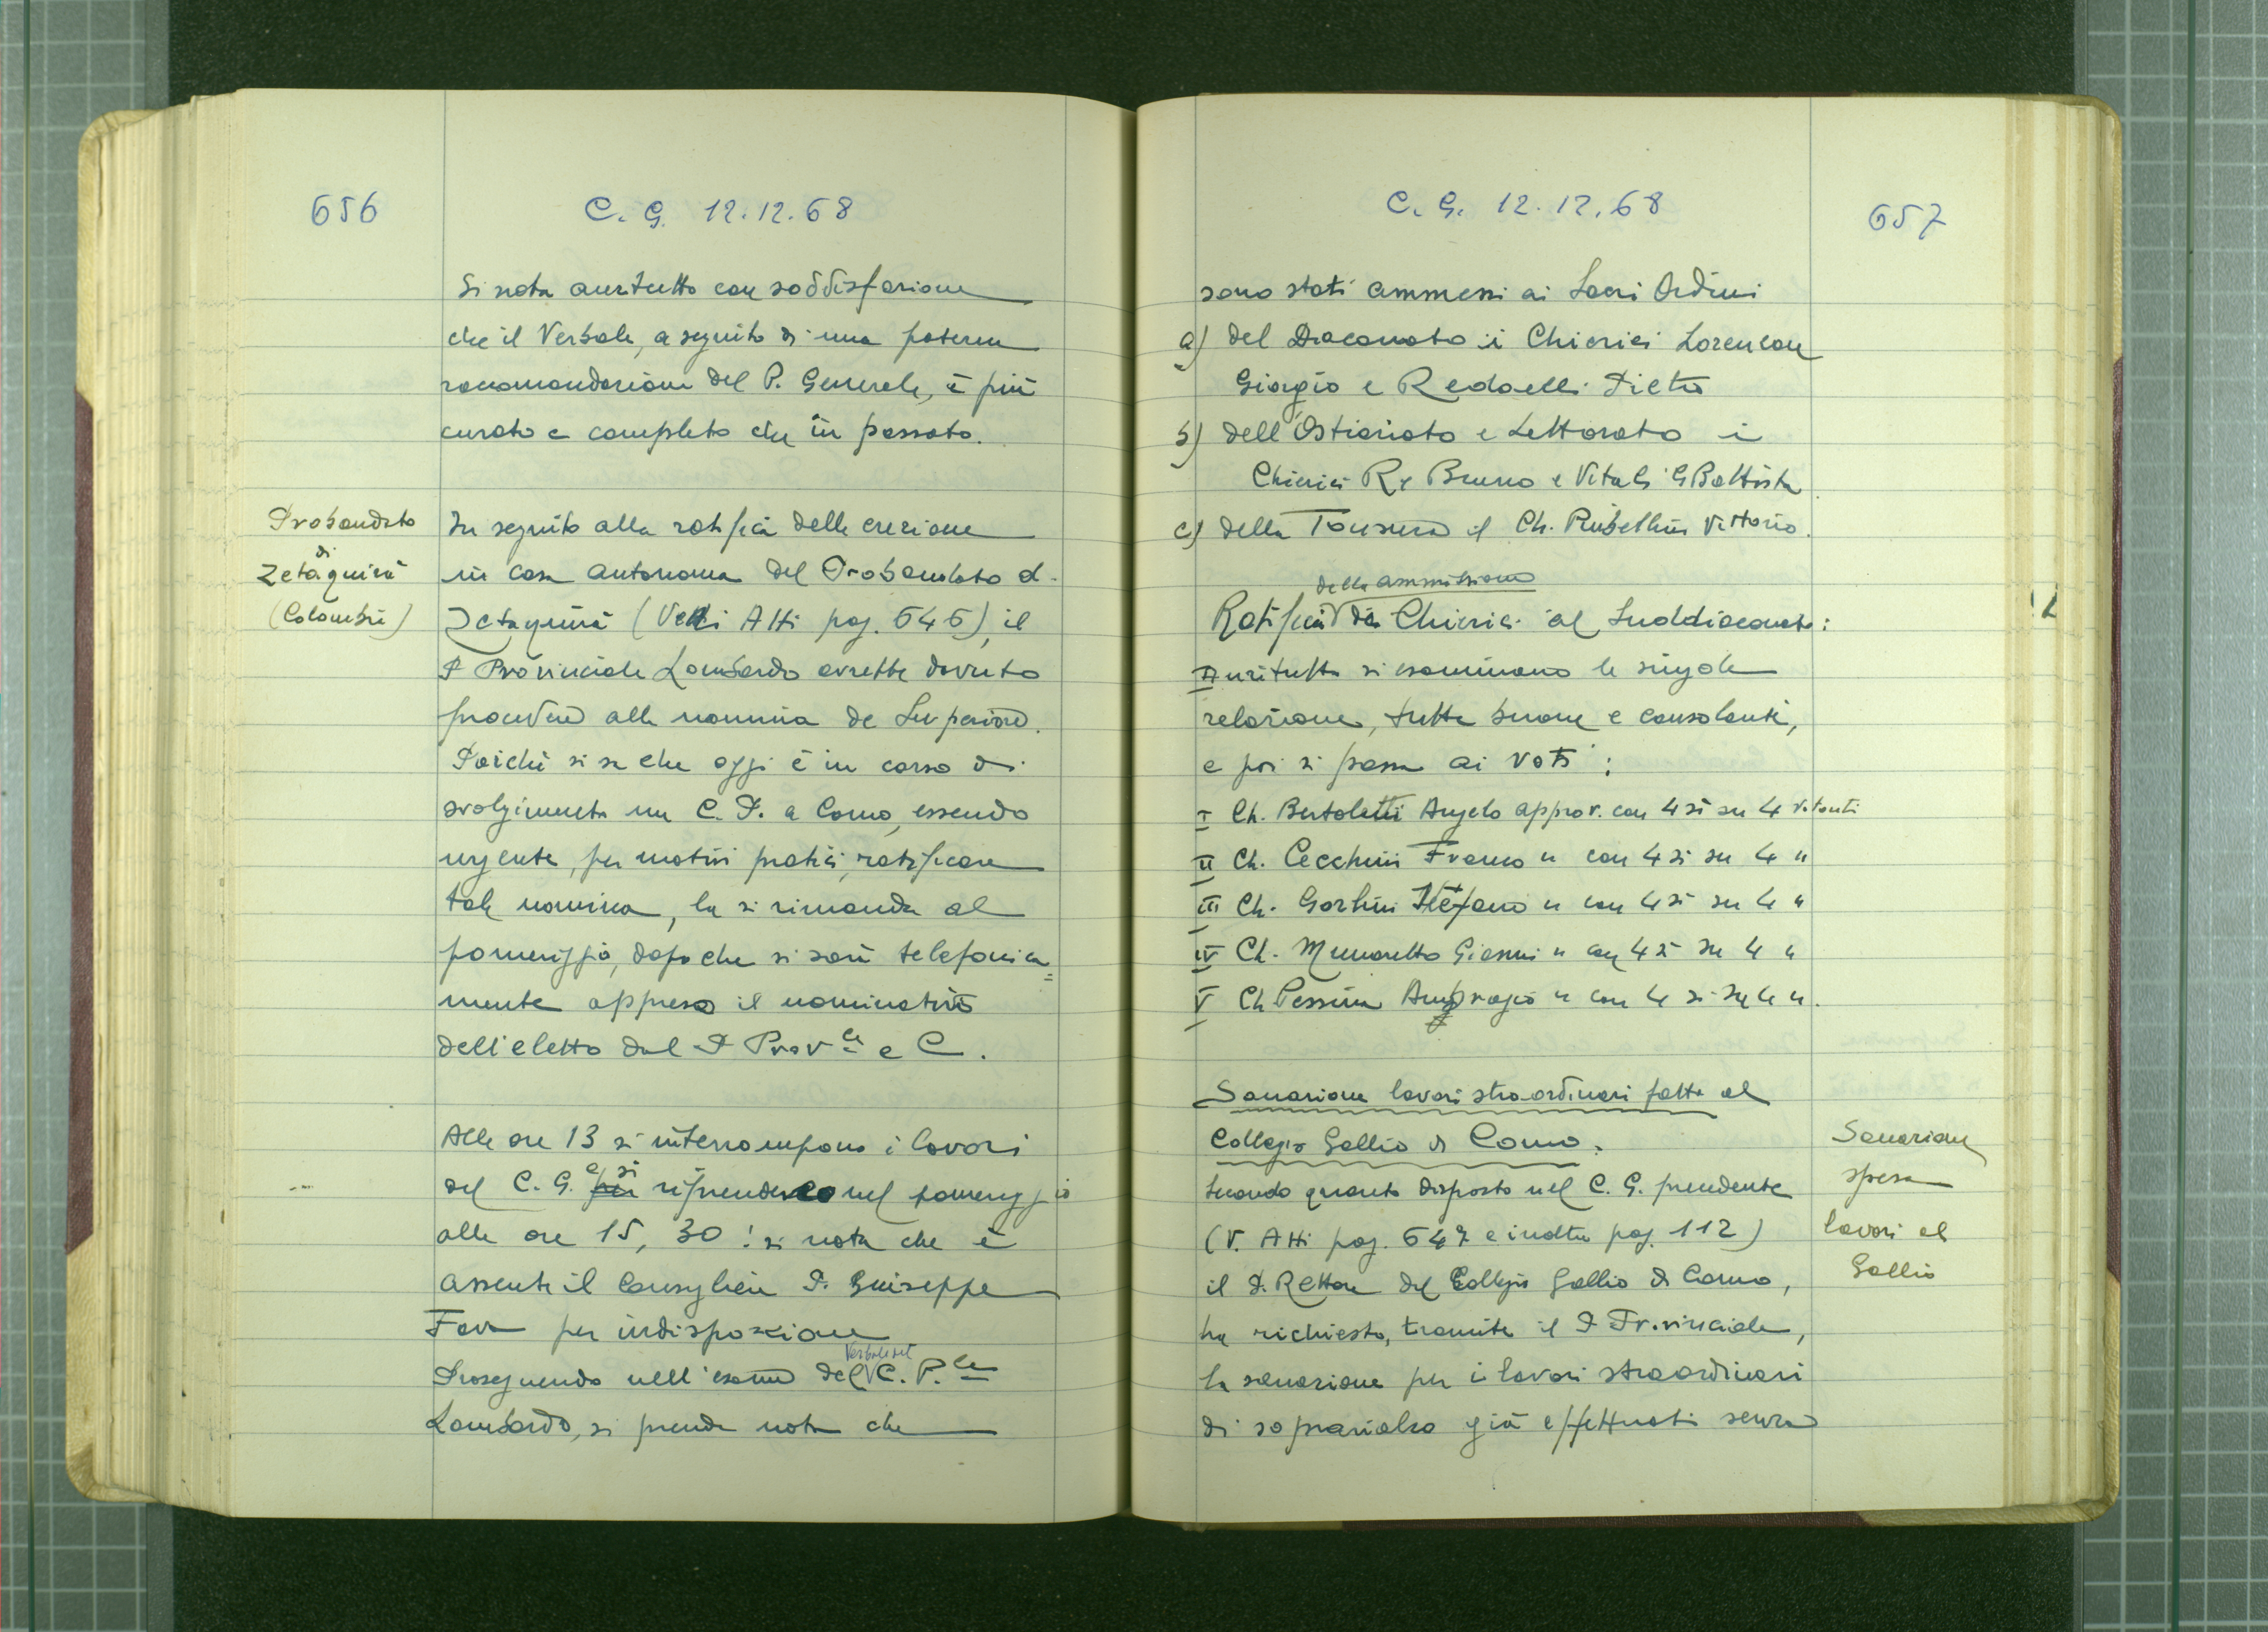 656
C. G. 12.12.68
Si nota anzitutto con soddisfazione
che il Verbale, a seguito di una paterna
raccomandazione del P. Generale, è più
curato e completo che in passato.
Probandato
di
Zetaquirà
(Colombia)
In seguito alla ratifica della erezione
in casa autonoma del Probandato di
Zetaquirà (Vedi Atti pag. 646), il
P. Provinciale Lombardo avrebbe dovuto
procedere alla nomina de Superiore.
Poichè si sa che oggi è in corso di
svolgimento un C. P. a Como, essendo
urgente, per motivi pratici, ratificare
tale nomina, la si rimanda al
pomeriggio, dopo che si sarà telefonica=
mente appreso il nominativo
dell'eletto dal P. Prov.le e C.
Alle ore 13 si interrompono i lavori
del C. G. e si riprendono nel pomeriggio
alle ore 15, 30: si nota che è
assente il Consigliere P. Giuseppe
Fava per indisposizione
Proseguendo nell'esame del Verbale del C. P.le
Lombardo, si prende nota che
C. G. 12.12.68
657
sono stati ammessi ai Sacri Ordini
a) del Diaconato i Chierici Lorenzon
Giorgio e Redaelli Pietro
b) dell'Ostiariato e Lettorato i
Chierici Re Bruno e Vitali G Battista
c) della Tonsura il Ch. Rubellini Vittorio.
della ammissione
Ratifica di Chierici al Suddiaconato:
Anzitutto si esaminano le singole
relazione, tutte buone e consolanti,
e poi si passa ai voti:
I Ch. Bertoletti Angelo approv. con 4 sì su 4 votanti
II Ch. Cecchini Franco " con 4 sì su 4 "
III Ch. Gorlini Stefano " con 4 sì su 4 "
IV Ch. Munaretto Gianni " con 4 sì su 4 "
V Ch Pessina Ambrogio " con 4 sì su 4 ".
Sanazione lavori straordinari fatti al
Collegio Gallio di Como.
Secondo quanto disposto nel C. G. precedente
(V. Atti pag. 647 e inoltre pag. 112)
il P. Rettore del Collegio Gallio di Como,
ha richiesto, tramite il P Provinciale,
la sanazione per i lavori straordinari
di soprarialzo già effettuati senza
Sanazione
spesa
lavori al
Gallio